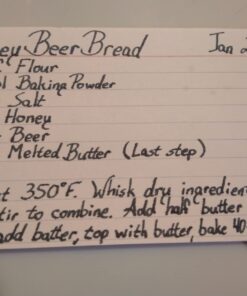 ey Beer Bread Jan 2
Flour
l Baking Powder
Salt
Honey
Beer
Melted Butter (Last step)
t 350°F. Whisk dry ingredien
tir to combine. Add half butter
add batter, top with butter, bake 40